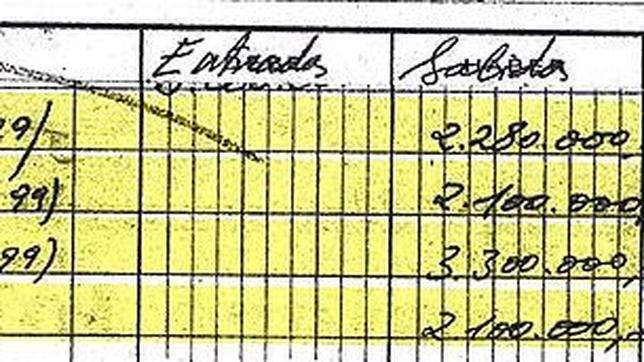 Entradas Salidas
29/ 2.280.000,
99) 2.100.000,
99) 3.300.000,
2.100.000,